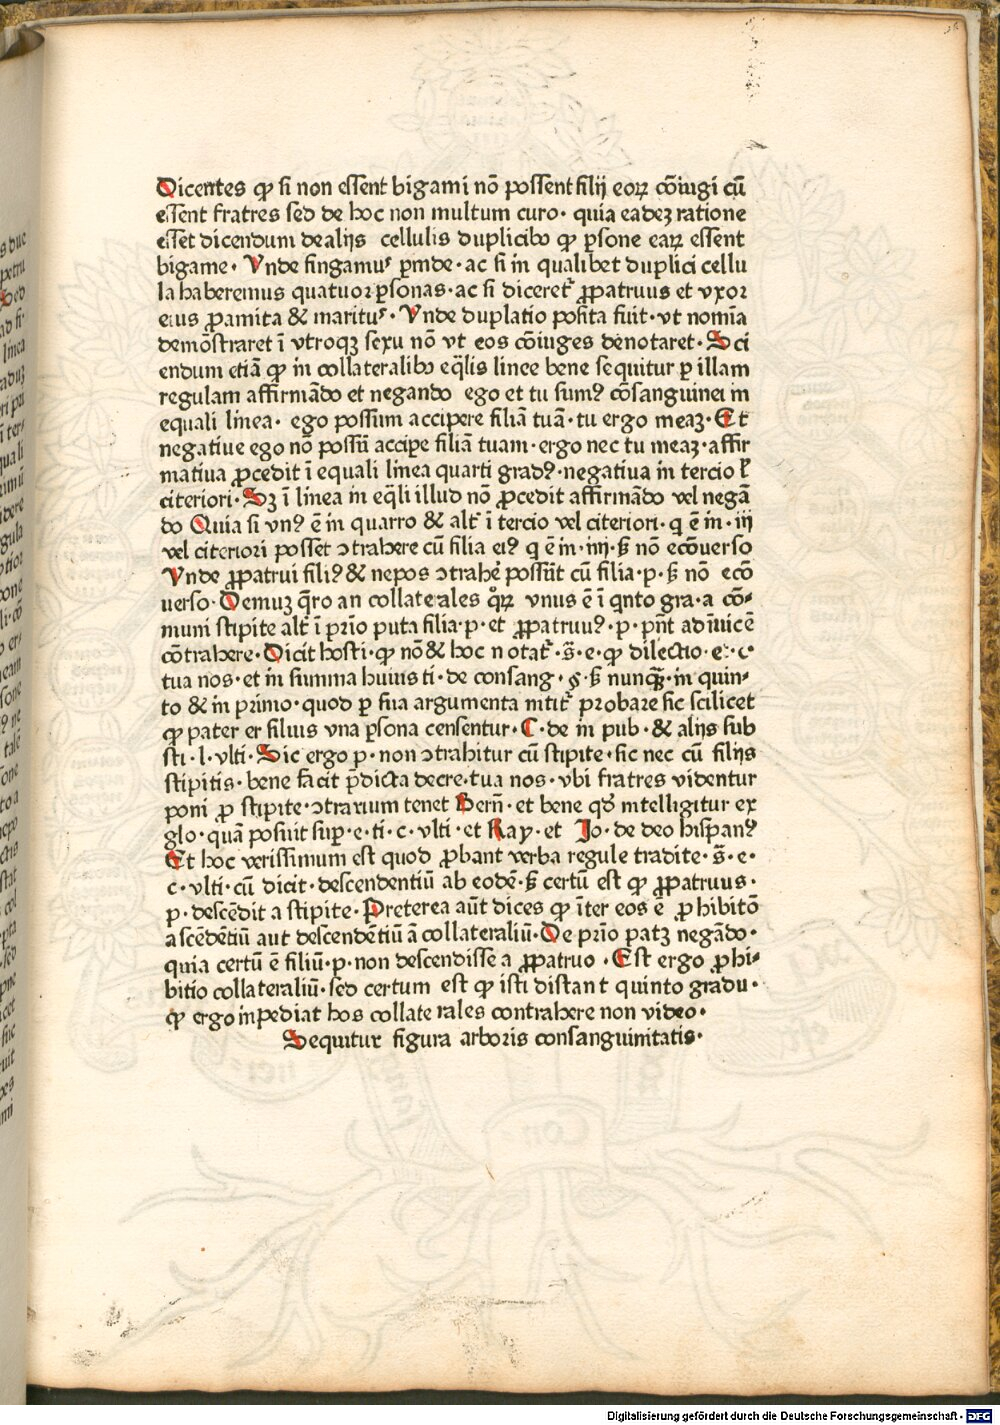 Dicentes ꝙ si non essent bigami nō possent filij eoꝝ cōiugi cū
essent fratres sed de hoc non multum curo · quia eadeꝫ ratione
esset dicendum de alijs cellulis duplicibꝰ ꝙ ꝑsone eaꝝ essent
bigame · Vnde fingamuˢ ꝑinde · ac si in qualibet duplici cellu
la haberemus quatuor ꝑsonas · ac si diceret᷑ ꝓpatruus et vxor
eius ꝓamita & marituˢ · Vnde duplatio posita fuit · vt nomīa
demōstraret ī vtroqꝫ sexu nō vt eos cōiuges denotaret · Sci
endum etiā ꝙ in collateralibꝰ eq̄lis linee bene sequitur ꝑ illam
regulam affirmādo et negando ego et tu sumꝰ cōsanguinei in
equali linea · ego possum accipere filiā tuā · tu ergo meaꝫ · Et
negatiue ego nō possū acciꝑe filiā tuam · ergo nec tu meaꝫ · affir
matiua ꝓcedit ī equali linea quarti gradꝰ · negatiua in tercio ł
citeriori · Sꝫ ī linea in eq̄li illud nō ꝓcedit affirmādo vel negā
do Quia si vnꝰ ē in quarro & alt᷑ ī tercio vel citeriori · q ē in · iij
vel citeriori posset ↄtrahere cū filia eiꝰ q ē in · iiij · s̄ nō ecōuerso
Vnde ꝓpatrui filiꝰ & nepos ↄtrahe᷑ possūt cū filia · p · s̄ nō ecō
uerso · Demuꝫ q̄ro an collaterales qͦꝝ vnus ē ī qnto gra · a cō-
muni stipite alt᷑ ī pr̄io puta filia · p · et ꝓpatruuꝰ · p · pn̄t ad īuicē
cōtrahere · Dicit hosti · ꝙ nō & hoc notat᷑ · s̄ · e · ꝙ dilectio · e · c ·
tua nos · et in summa huius ti · de consang · ꝯ · s̄ nunqꝫ · in quin-
to & in primo · quod ꝑ sua argumenta nitit᷑ probare sic scilicet
ꝙ pater er filius vna ꝑsona censentur · C · de in pub · & alijs sub
sti · l · vlti · Sic ergo p · non ↄtrahitur cū stipite · sic nec cū filijs
stipitis · bene facit p̄dicta decre · tua nos · vbi fratres videntur
poni ꝓ stipite · ↄtrarium tenet Bern̄ · et bene qd̕ intelligitur ex
glo · quā posuit suꝑ · e · ti · c · vlti · et Ray · et Jo · de deo hispanꝰ
Et hoc verissimum est quod ꝓbant verba regule tradite · s̄ · e ·
c · vlti · cū dicit · descendentiū ab eodē · s̄ certū est ꝙ ꝓpatruus ·
p · descēdit a stipite · Preterea aūt dices ꝙ īter eos ē ꝓhibitō
ascēdētiū aut descendētiū ā collateraliū · De pr̄io patꝫ negādo ·
quia certū ē filiū · p · non descendisse a ꝓpatruo · Est ergo ꝓhi-
bitio collateraliū · sed certum est ꝙ isti distant quinto gradu ·
ꝙ ergo inpediat hos collaterales contrahere non video ·
Sequitur figura arboris consanguinitatis ·
Digitalisierung gefördert durch die Deutsche Forschungsgemeinschaft - DFG